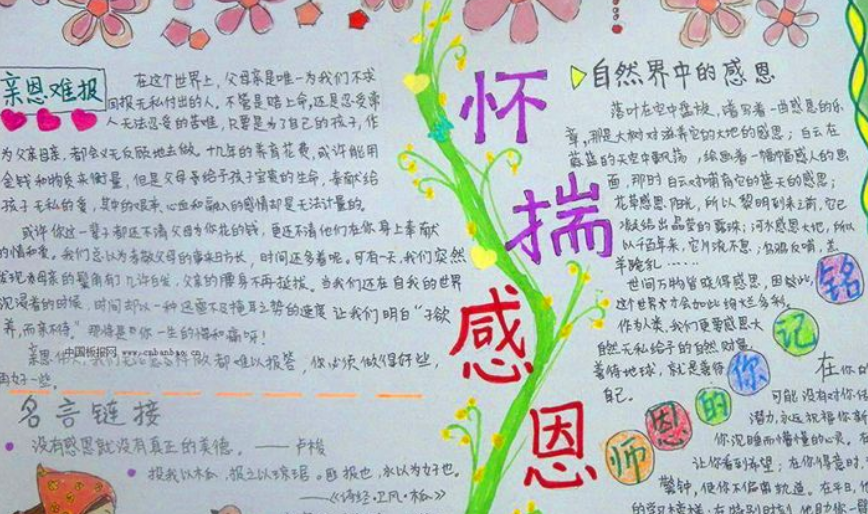 亲恩难报
在这个世界上，父母亲是唯一为我们不求
回报无私付出的人。不管是赔上命，还是忍受常
人无法忍受的苦难，只要是为了自己的孩子，作
为父亲母亲，都会义无反顾地去做。十几年的养育花费，或许能用
金钱和物质来衡量，但是父母予给予孩子宝贵的生命，奉献给
孩子无私的爱，其中的艰辛、心血和融入的感情却是无法计量的。
或许你这一辈子都还不清父母为你花的钱，更还不清他们在你身上奉献
的情和爱。我们总以为孝敬父母的事来日方长，时间还多着呢。可有一天，我们突然
发现，母亲的鬓角有了几许白丝，父亲的腰身不再挺拔。当我们还在自我的世界
沉浸着的时候，时间却以一种迅雷不及掩耳之势的速度让我们明白“子欲
养，而亲不待”。那将是你一生的悔和痛呀！
亲恩 都难以报答，你必须做得好些，
再好一些。
中国板报网 www.cnbanbao.cn
名言链接
没有感恩就没有真正的美德。——卢梭
投我以木瓜，报之以琼琚。匪报也，永以为好也。
——《诗经·卫风·木瓜》
怀揣感恩
自然界中的感恩
落叶在空中盘旋，谱写着一曲感恩的乐
章，那是大树对滋养它的大地的感恩；白云在
蔚蓝的天空中飘荡，绘画着一幅幅感人的画
面，那时白云对哺育它的蓝天的感恩；
花草感恩阳光，所以黎明到来前，它已
凝结出晶莹的露珠；河水感恩大地，所以
以千百年来，它川流不息；乌鸦反哺，羔
羊跪乳……
世间万物皆晓得感恩，因此，
这个世界才会如此绚烂多彩。
作为人类，我们更要感恩大
自然无私给予的自然，
善待地球，就是善待
自己。
铭记你的恩师
在你的
可能没有对你
潜力，永远祝福你新
你沉睡而懵懂的心灵，在
让你看到希望；在你得意时，
警钟，使你不偏离轨道。在平日，他
的学习榜样；在特别时刻，他助你一臂